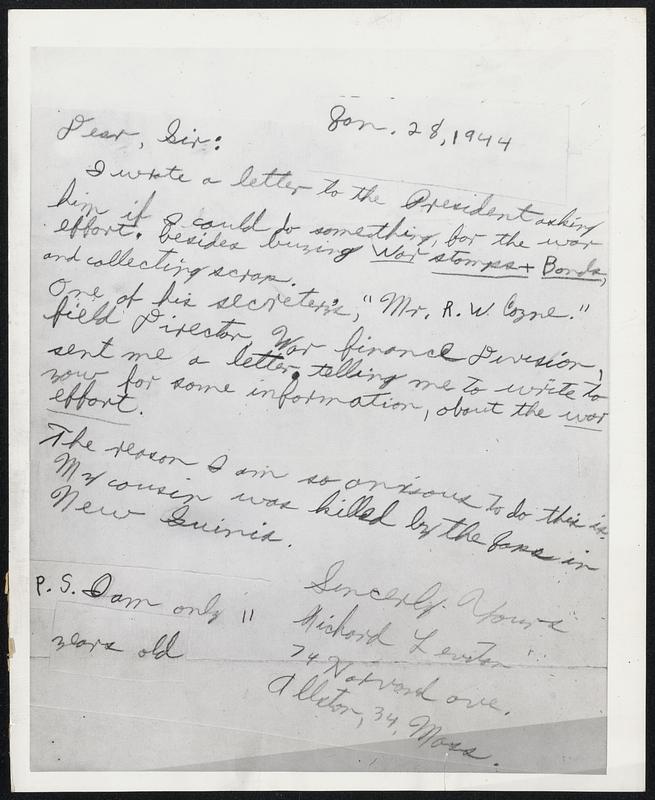 Jan. 28, 1944
Dear, Sir:
I wrote a letter to the President asking
him if I could do something, for the war
effort. besides buzing War stamps + Bonds,
and collecting scrap.
One, of his secreter's, "Mr. R. W. Cozne."
field Director, War finance Division,
sent me a letter, telling me to write to
zow for some information, about the war
effort.
The reason I am so anxious to do this is
My cousin was killed by the Japs in
New Guinia.
Sincerly. Yours
Richard Levitan
74 Harvard ave.
Allston, 34, Mass.
P. S. I am only 11
years old